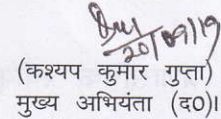 20/09/19
(कश्यप कुमार गुप्ता)
मुख्य अभियंता (द०)।